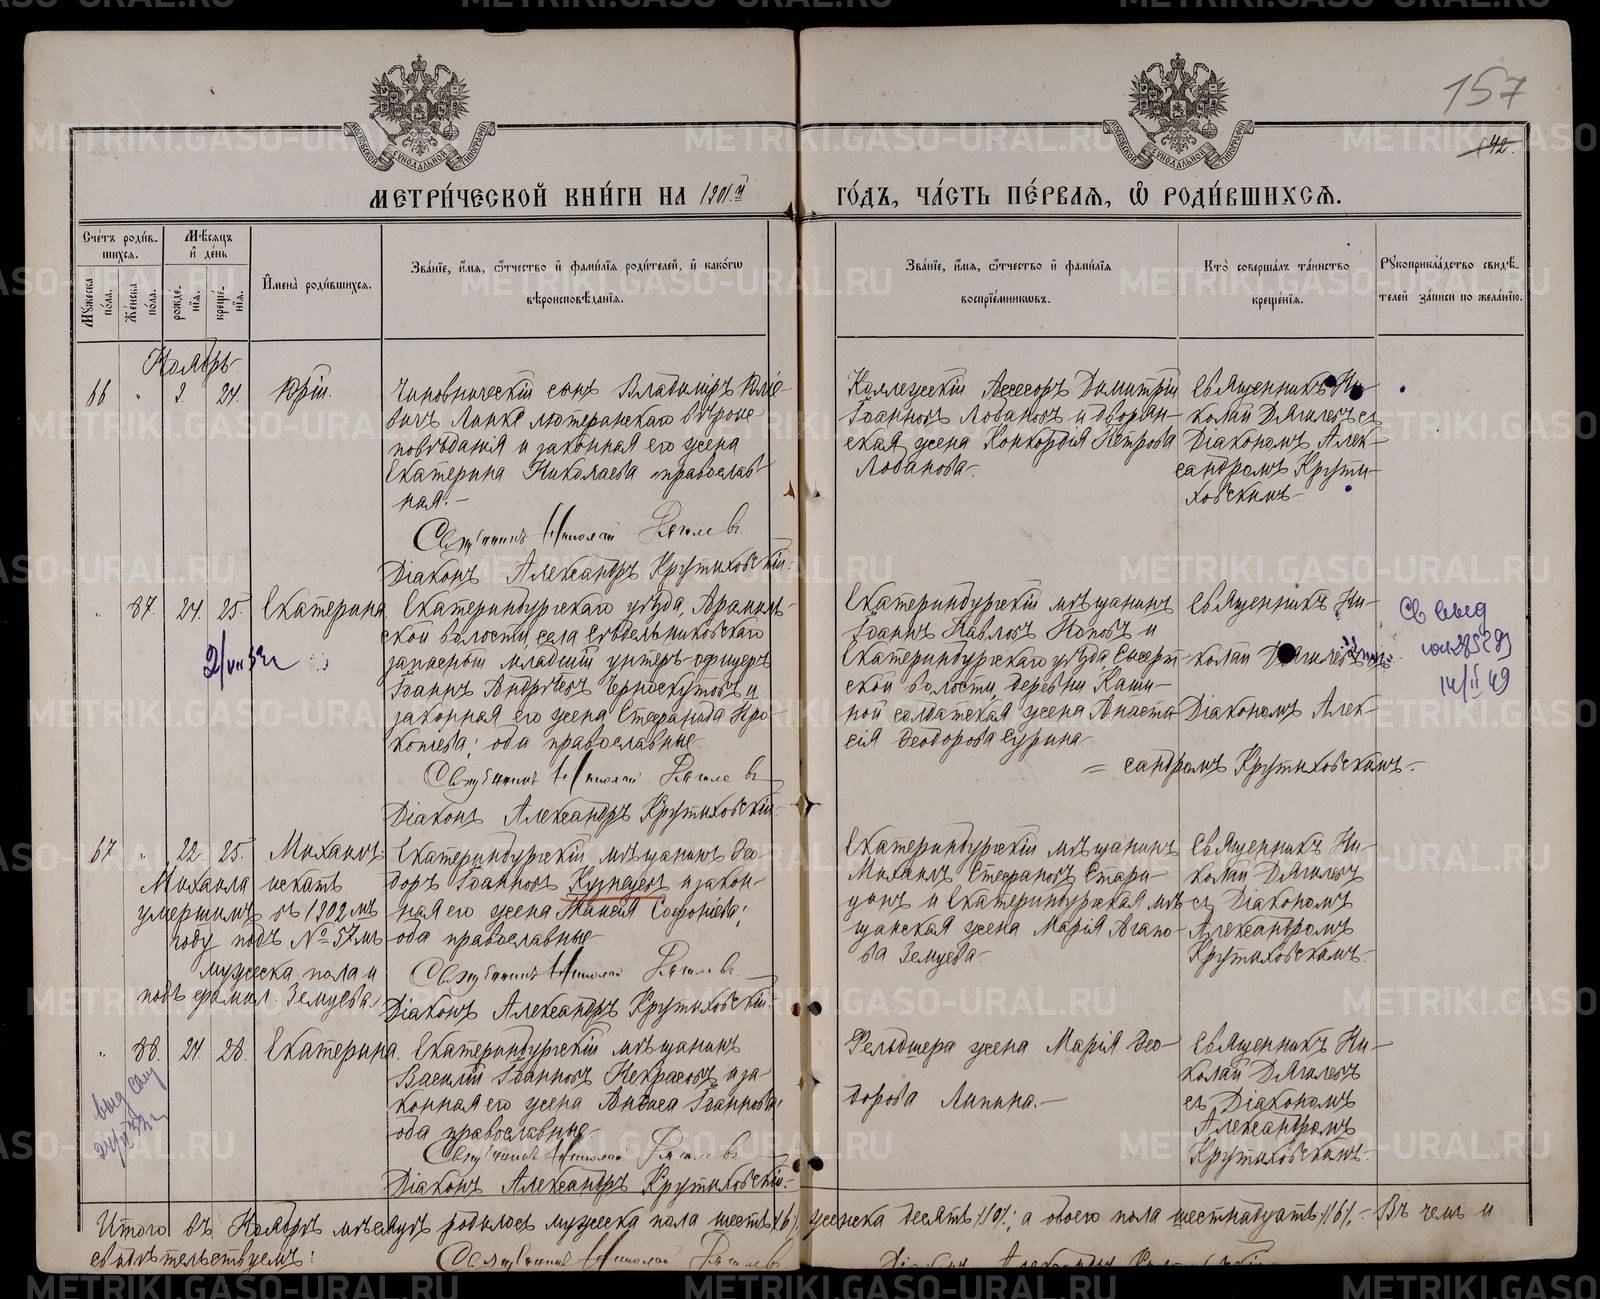 METRIKI.GASO-URAL.RU
157
42.
МЕТРИ́ЧЕСКОЙ КНИ́ГИ НА 1901й ГО́ДЪ, ЧА́СТЬ ПЕ́РВАЯ, Ѽ РОДИ́ВШИХСЯ.
Счетъ родившихся.
Мужеска пола.
Женска пола.
Мѣсяцъ и день
рожденія.
крещенія.
Имена родившихся.
Званіе, имя, отчество и фамилія родителей, и какого
вѣроисповѣданія.
Званіе, имя, отчество и фамилія
воспріемниковъ.
Кто совершалъ таинство
крещенія.
Рукоприкладство свидѣ-
телей записи по желанію.
Ноябрь
66 " 9. 24. Юрій.
Чиновническій сынъ Владиміръ Юліе-
вичъ Ланке лютеранскаго вѣроис-
повѣданія и законная его жена
Екатерина Николаева православ-
ная.-
Священникъ Николай Дягилевъ
Діаконъ Александръ Крутиховскій.
Коллежскій Ассесоръ Димитрій
Іоанновъ Лобановъ и дворян-
ская жена Конкордія Петрова
Лобанова.
Священникъ Ни-
колай Дягилевъ съ
Діакономъ Алек-
сандромъ Крути-
ховскимъ.
" 87. 24. 25. Екатерина
Екатеринбургскаго уѣзда, Арамиль-
ской волости, села Сѣдельниковскаго
запасный младшій унтеръ-офицеръ
Іоаннъ Андреевъ Черноскутовъ и
законная его жена Стефанида Про-
копіева; оба православные.
Священникъ Николай Дягилевъ
Діаконъ Александръ Крутиховскій.
Екатеринбургскій мѣщанинъ
Іоаннъ Павловъ Поповъ и
Екатеринбургскаго уѣзда, Сысерт-
ской волости, деревни Каши-
ной солдатская жена Анаста-
сія Ѳеодорова Сурина.
Священникъ Ни-
колай Дягилевъ
Діакономъ Алек-
= сандромъ Крутиховскимъ.
Св выд
14/II 49
67 " 22. 25. Михаилъ.
Михаила искать
умершимъ въ 1902 мъ
году подъ № 57мъ
мужеска пола и
подъ фамил. Земцева
Екатеринбургскій мѣщанинъ Ѳео-
доръ Іоанновъ Кузнецовъ и закон-
ная его жена Таисія Софоніева;
оба православные.
Священникъ Николай Дягилевъ
Діаконъ Александръ Крутиховскій.
Екатеринбургскій мѣщанинъ
Михаилъ Стефановъ Стари-
цынъ и Екатеринбургская мѣ-
щанская жена Марія Агапо-
ва Земцева.
Священникъ Ни-
колай Дягилевъ
съ Діакономъ
Александромъ
Крутиховскимъ.
" 88. 24. 28. Екатерина.
Екатеринбургскій мѣщанинъ
Василій Іоанновъ Некрасовъ и за-
конная его жена Анфиса Іоаннова;
оба православные.
Священникъ Николай Дягилевъ
Діаконъ Александръ Крутиховскій.
Фельдшера жена Марія Ѳео-
дорова Липина.-
Священникъ Ни-
колай Дягилевъ
съ Діакономъ
Александромъ
Крутиховскимъ.
Итого въ Ноябрѣ мѣсяцѣ родилось мужеска пола шесть /6/, женска десять /10/; а обоего пола шестнадцать /16/.- Въ чемъ и
свидѣтельствуемъ:
Священникъ Николай Дягилевъ
Діаконъ Александръ Крутиховскій